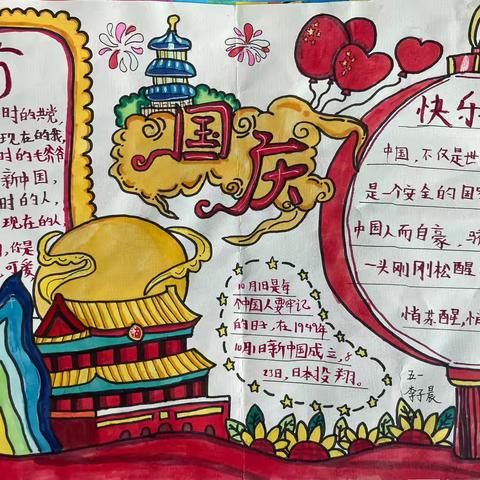 时的共党,
现在的我,
时的毛爷爷
新中国,
时的人,
现在的人
你是
可爱
国庆
10月1日是每
个中国人要牢记
的日子,在1949年
10月1日新中国成立,8
23日,日本投翔。
快乐
中国,不仅是世
是一个安全的国
中国人而自豪,
一头刚刚松醒
悄苏醒,悄
五一
李子晨